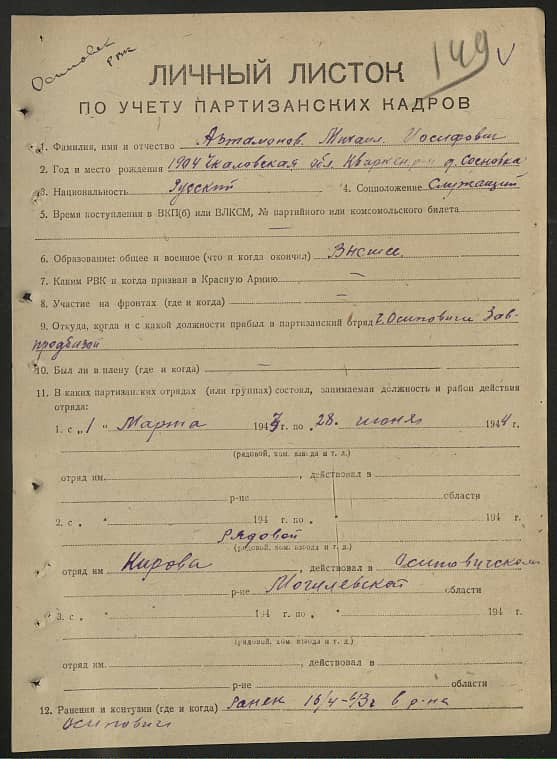 Осиповск
РВК
149 V
ЛИЧНЫЙ ЛИСТОК
ПО УЧЕТУ ПАРТИЗАНСКИХ КАДРОВ
1. Фамилия, имя и отчество Азтамонов Михаил Иосифович
2. Год и место рождения 1904 Чкаловская обл. Кваркен р-н д. Сосновка
3. Национальность Русский 4. Соцположение Служащий
5. Время поступления в ВКП(б) или ВЛКСМ, № партийного или комсомольского билета
—
6. Образование: общее и военное (что и когда окончил) Высшее
7. Каким РВК и когда призван в Красную Армию —
8. Участие на фронтах (где и когда) —
9. Откуда, когда и с какой должности прибыл в партизанский отряд г. Осиповичи Зав-
продбазой
10. Был ли в плену (где и когда) —
11. В каких партизанских отрядах (или группах) состоял, занимаемая должность и район действия
отряда:
1. с „1 " Марта 1943 г. по „28. июня 1944 г.
(рядовой, ком. взвода и т. д.)
отряд им. , действовал в
р-не области
2. с „ " 194 г. по „ " 194 г.
рядовой
(рядовой, ком. взвода и т. д.)
отряд им Кирова , действовал в Осиповичском
р-не Могилевской области
3. с „ " 194 г. по „ " 194 г.
(рядовой, ком. взвода и т. д.)
отряд им. , действовал в
р-не области
12. Ранения и контузии (где и когда) Ранен 16/4-43г в р-на
Осиповичи